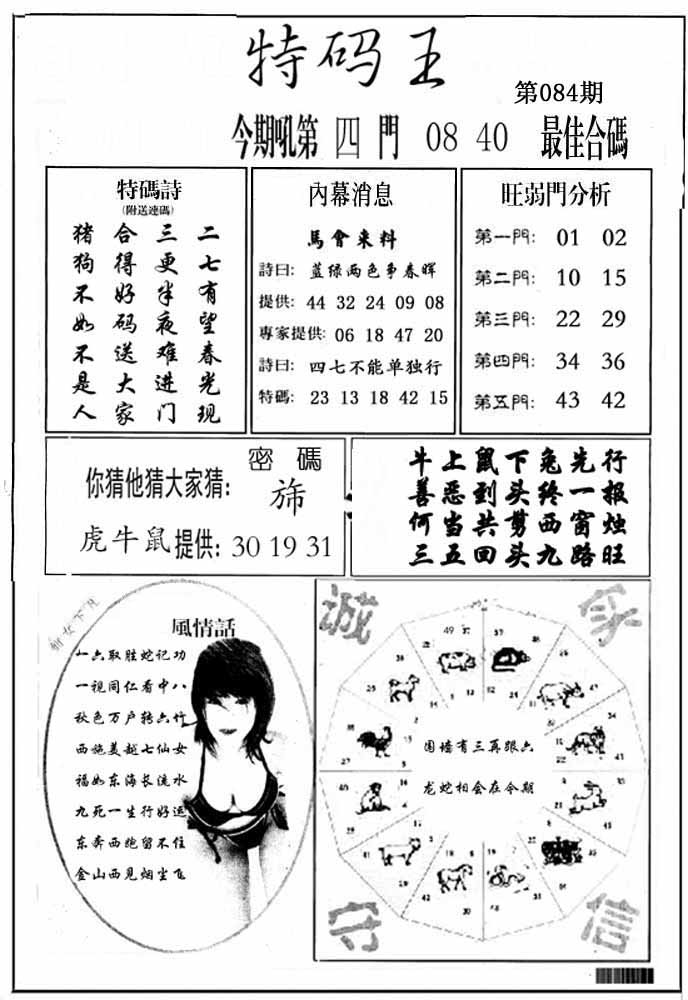 特码王
第084期
今期吼第 四 門 08 40 最佳合碼
特碼詩
(附送連碼)
猪 合 三 二
狗 得 更 七
不 好 半 有
如 码 夜 望
不 送 难 春
是 大 进 光
人 家 门 现
內幕消息
馬會来料
詩曰: 蓝绿两色争春晖
提供: 44 32 24 09 08
專家提供: 06 18 47 20
詩曰: 四七不能单独行
特碼: 23 13 18 42 15
旺弱門分析
第一門: 01 02
第二門: 10 15
第三門: 22 29
第四門: 34 36
第五門: 43 42
密 碼
你猜他猜大家猜:
虎牛鼠提供: 30 19 31
牛上鼠下兔先行
善恶到头终一报
何当共剪西窗烛
三五回头九路旺
風情話
一六取胜蛇记功
一视同仁看中八
秋色万户转六竹
西施美越七仙女
福如东海长流水
九死一生行好运
东奔西跑留不住
金山西见烟尘飞
诚
家
围墙有三再跟六
龙蛇相会在今期
守
信